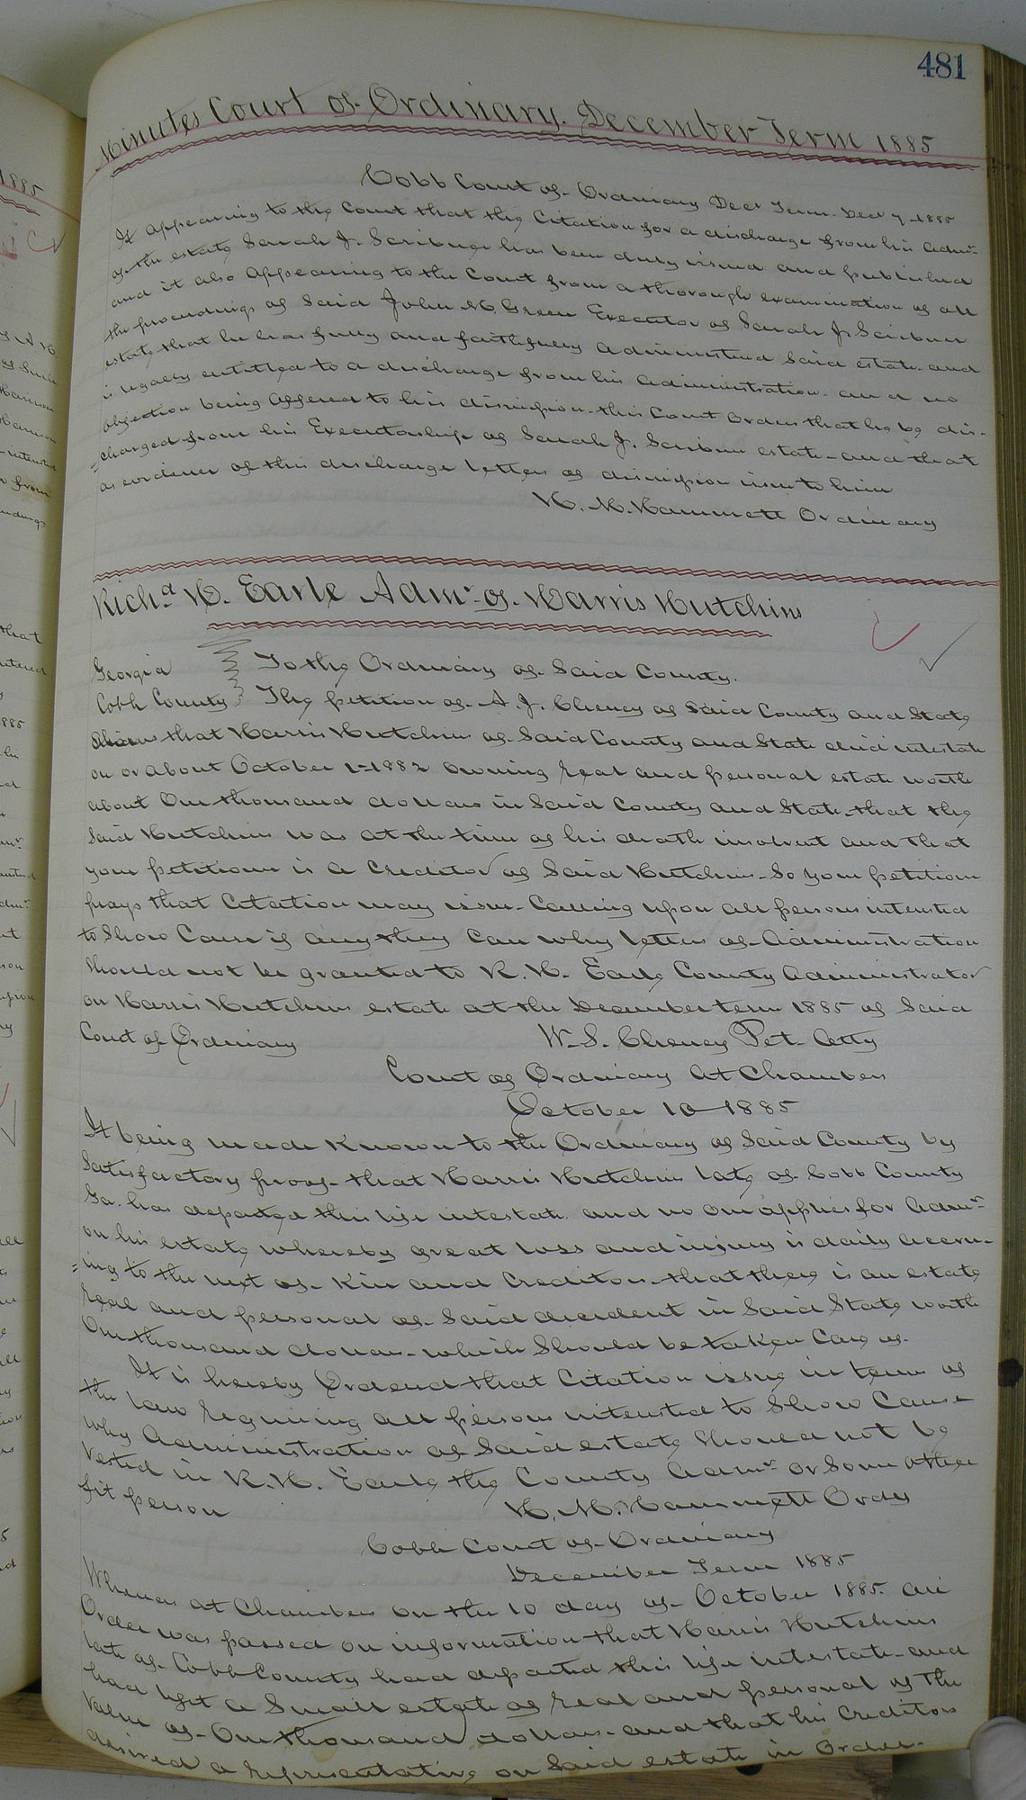 481
Minutes Court of Ordinary. December Term 1885
Cobb Court of Ordinary Decr Term Decr 7 1885
It appearing to the Court that the Citation for a discharge from his Admr
of the estate Sarah J. Scribner has been duly issued and published
and it also Appearing to the Court from a thorough examination of all
the proceedings of Said John M. Green Executor of Sarah J. Scribner
estate that he has fully and faithfully Administered Said estate and
is legally entitled to a discharge from his Administration. and no
objection being Offered to his dismission this Court Orders that he be dis-
=charged from his Executorship of Sarah J. Scribner estate and that
as evidence of this discharge letters of dismission issue to him
H. M. Hammett Ordinary
Richd H. Earle Admr of Harris Hutchins
Georgia To the Ordinary of Said County.
Cobb County The petition of A. J. Cheney of Said County and State
Shows that Harris Hutchins of Said County and State died intestate
on or about October 1 1882 owning real and personal estate worth
about One thousand dollars in Said County and State that the
Said Hutchins was at the time of his death insolvent and that
your petitioner is a Creditor of Said Hutchins So your petitioner
prays that Citation may issue Calling upon all persons interested
to Show Cause if any they Can why letters of Administration
Should not be granted to R. H. Earle County Administrator
on Harris Hutchins estate at the December term 1885 of Said
Court of Ordinary W. S. Cheney Pet. Atty
Court of Ordinary At Chambers
October 10 1885
It being made Known to the Ordinary of Said County by
Satisfactory proof that Harris Hutchins late of Cobb County
Ga. has departed this life intestate and no one applies for Admr
on his estate whereby great loss and injury is daily accru-
=ing to the next of Kin and Creditors that there is an estate
real and personal of Said decedent in Said State worth
One thousand dollars which Should be taken Care of.
It is hereby Ordered that Citation issue in terms of
the law requiring all persons interested to Show Cause
why Administration of Said estate Should not be
vested in R. H. Earle the County Admr or Some other
fit person H. M. Hammett Ordy
Cobb Court of Ordinary
December Term 1885
Whereas at Chambers on the 10 day of October 1885 an
Order was passed on information that Harris Hutchins
late of Cobb County had departed this life intestate and
had left a Small estate of real and personal of the
value of One thousand dollars and that his Creditors
desired a representative on Said estate in Order.